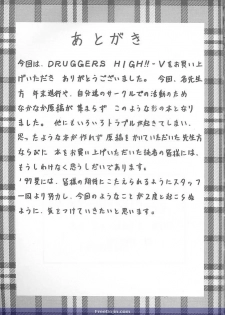 あとがき
今回は、DRUGGERS HIGH!!-Vをお買い上
げいただき ありがとうございました。今回、各先生
方 年末進行や、自分達のサークルでの活動のため
なかなか原稿が集まらず このような形の本となり
ました。他にもいろいろトラブルが起きてしまい、
思ったような本が作れず 原稿をかいていただいた先生方
ならびに 本をお買い上げいただいた読者の皆様には、
もうしわけなく思うしだいであります。
'97夏には、皆様の期待にこたえられるようにスタッフ
一同より努力し、今回のようなことが2度と起こらぬ
ように、気をつけていきたいと思います。